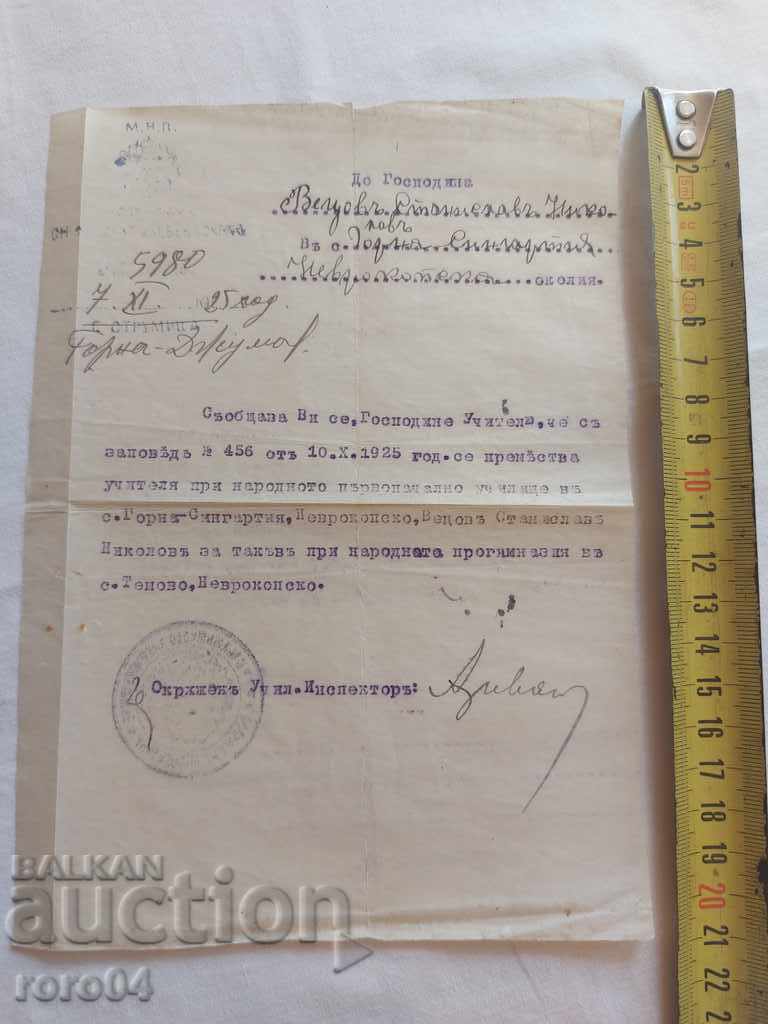 М.Н.П.
До Господина
Вецовъ Станиславъ Нико-
ловъ
Въ с. Горна Сингартия
Неврокопска околия.
5980
7. XI. 25 год.
С. СТРУМИЦА
Горна-Джумая.
Съобщава Ви се, Господине Учителю, че съ
заповѣдь № 456 отъ 10.X.1925 год. се премѣства
учителя при народното първоначално училище въ
с. Горна Сингартия, Неврокопско, Вецовъ Станиславъ
Николовъ за такъвъ при народната прогимназия въ
с. Теново, Неврокопско.
Окрѫженъ Учил. Инспекторъ:
BALKAN
auction
roro04
2 3 4 5 6 7 8 9 10 11 12 13 14 15 16 17 18 19 20 21 22